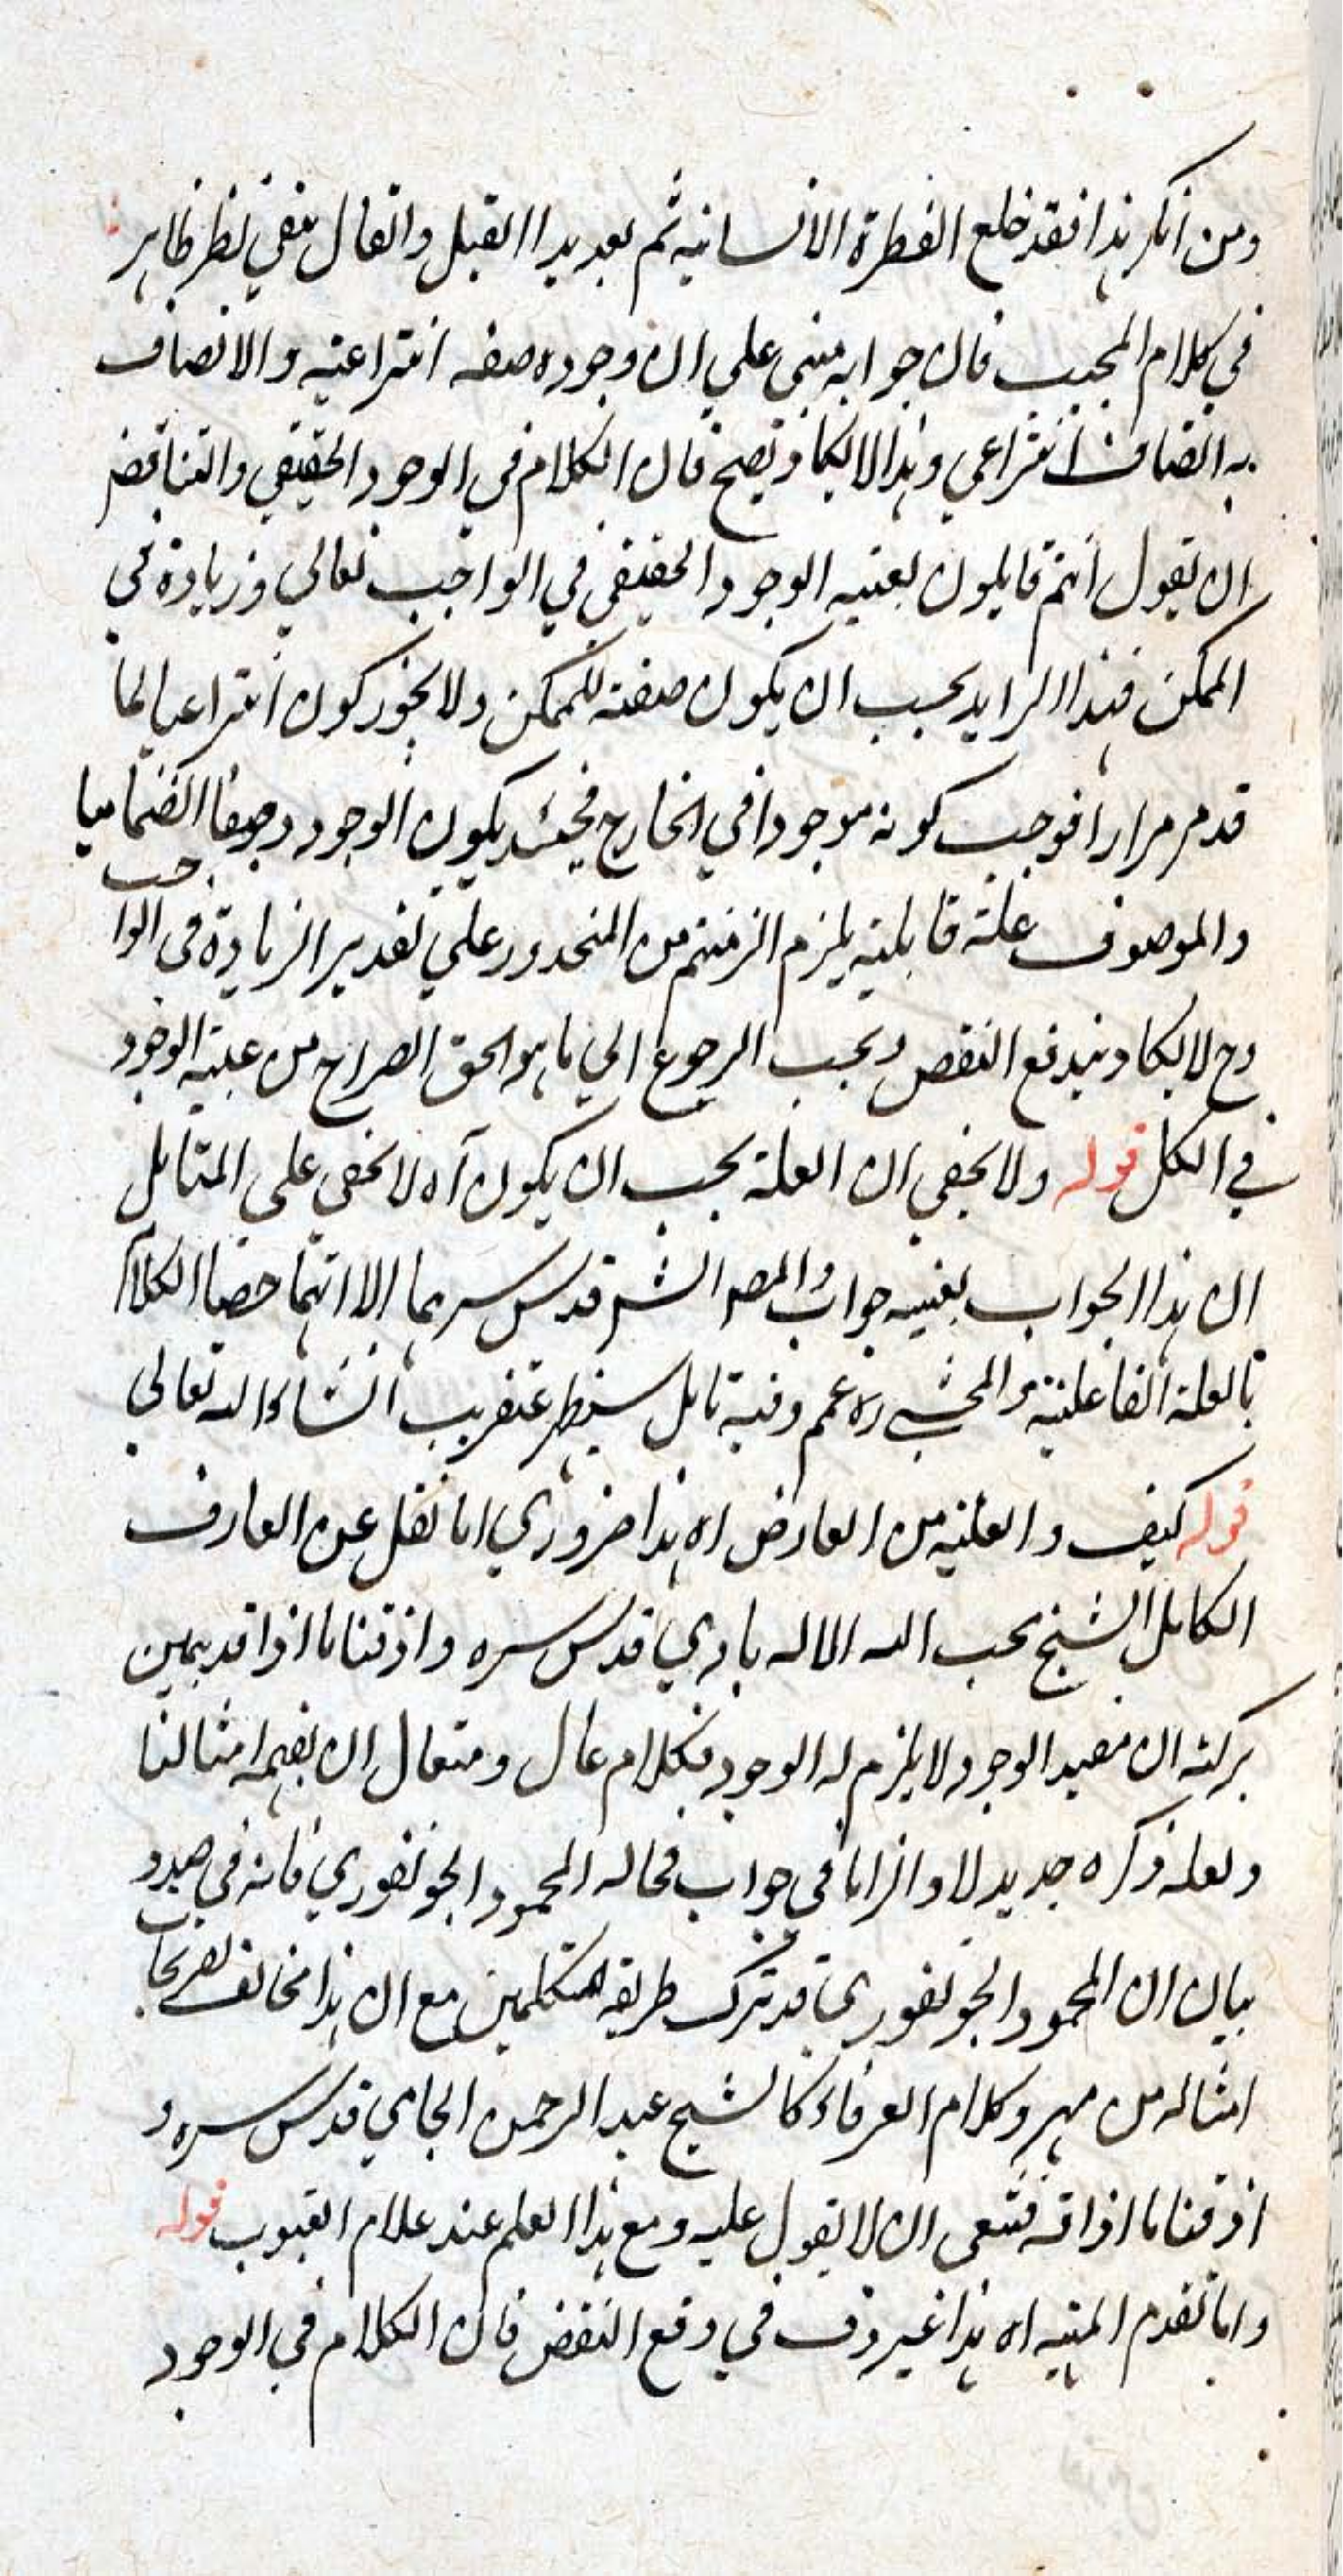 ومن انكر هذا فقد خلع الفطرة الانسانية ثم بعد هذا القيل والقال بقي نظر ظاهر
في كلام المجيب فان جوابه مبني علي ان وجوده صفة انتزاعية والاتصاف
به اتصاف انتزاعي وهذا لا يكاد يصح فان الكلام في الوجود الحقيقي والتناقض
ان تقول انتم قايلون بعينية الوجود الحقيقي في الواجب تعالي وزيادة في
الممكن فهذا الزايد يجب ان يكون صفة للممكن ولا يجوز كون انتزاعيا لما
قد مر مرارا فوجب كونه موجودا في الخارج فحينئذ يكون الوجود وصفا انضماميا
والموصوف علة قابلية يلزم الزمتم من المحذور علي تقدير الزيادة في الواجب
وح لا يكاد يندفع النقض ويجب الرجوع الي ما هو الحق الصراح من عينية الوجود
في الكل قوله ولا يخفي ان العلة يجب ان يكون آه لا يخفي علي المتامل
ان هذا الجواب بعينه جواب المص والش قدس سرهما الا انهما خصا الكلام
بالعلة الفاعلية والمحشي ره عمم وفيه تامل سيظهر عنقريب انشاء الله تعالي
قوله كيف والعلية من العارض اه هذا ضروري اما نقل عن العارف
الكامل الشيخ محب الله الاله بادي قدس سره واذقنا ما اذاقه بيمين
بركته ان مفيد الوجود لا يلزم له الوجود فكلام عال ومتعال ان يفهمه امثالنا
ولعله ذكره جديدلا والزاما في جواب فحاله المحمود الجونفوري فانه في صدد
بيان ان المحمود الجونفوري قد ترك طريقة المتكلمين مع ان هذا مخالف لتصريحات
امثاله من مهر وكلام العرفاء كالشيخ عبد الرحمن الجامي قدس سره و
اذقنا ما اذاقه فينبغي ان لا يقول عليه ومع هذا العلم عند علام الغيوب قوله
واما تقدم المهية اه هذا غير واف في دفع النقض فان الكلام في الوجود